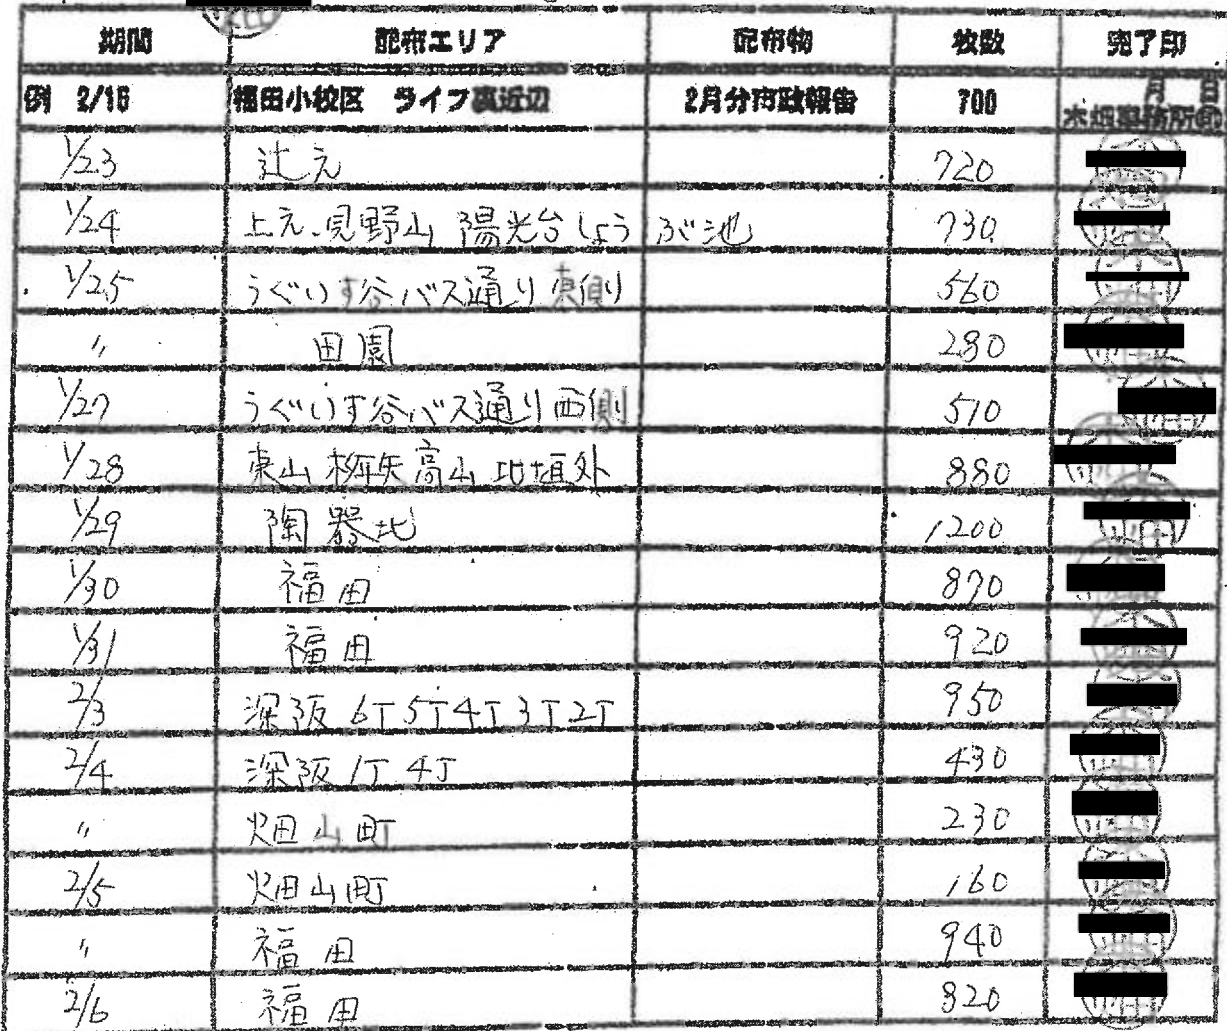 期間 配布エリア 配布物 枚数 完了印
例 2/16 福田小校区 ライフ裏近辺 2月分市政報告 700 月 日
1/23 辻之 720
1/24 上之、見野山 陽光台 しょうぶ池 730
1/25 うぐいす谷バス通り東側 560
〃 田園 280
1/27 うぐいす谷バス通り西側 510
1/28 東山 高山 880
1/29 陶器北 1200
1/30 福田 870
1/31 福田 920
2/3 深阪 6丁5丁4丁3丁2丁 950
2/4 深阪 1丁 4丁 430
〃 畑山町 230
2/5 畑山町 160
〃 福田 940
2/6 福田 820